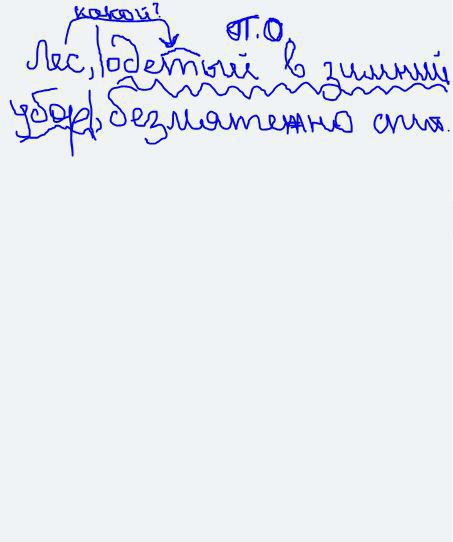 какой?
П.О.
Лес, |одетый в зимний
убор|, безмятежно спит.